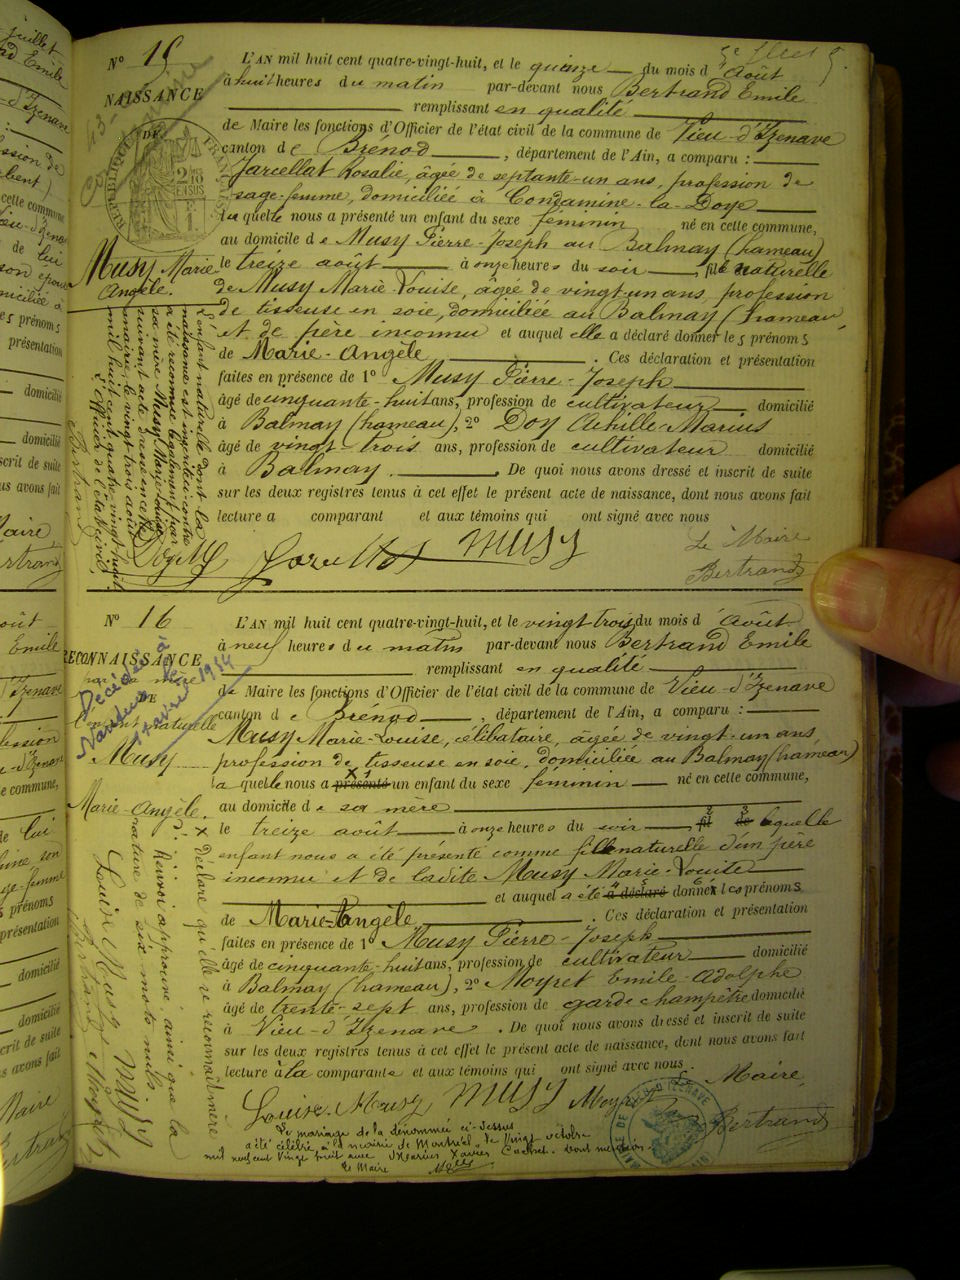 N° 15
NAISSANCE
DE
Musy Marie
Angèle.
L'AN mil huit cent quatre-vingt-huit, et le quinze du mois d'Août
à huit heures du matin par-devant nous Bertrand Emile
remplissant en qualité
de Maire les fonctions d'Officier de l'état civil de la commune de Vieu-d'Izenave
canton de Brénod, département de l'Ain, a comparu :
Jarcellat Rosalie, âgée de septante-un ans, profession de
sage-femme, domiciliée à Condamine-la-Doye
laquelle nous a présenté un enfant du sexe féminin né en cette commune,
au domicile de Musy Pierre-Joseph au Balmay (hameau)
le treize août à onze heures du soir, fille naturelle
de Musy Marie Louise, âgée de vingt-un ans, profession
de tisseuse en soie, domiciliée au Balmay (hameau,
et de père inconnu et auquel elle a déclaré donner les prénoms
de Marie-Angèle. Ces déclaration et présentation
faites en présence de 1° Musy Pierre-Joseph
âgé de cinquante-huit ans, profession de cultivateur domicilié
à Balmay (hameau), 2° Doy Achille-Marius
âgé de vingt-trois ans, profession de cultivateur domicilié
à Balmay. De quoi nous avons dressé et inscrit de suite
sur les deux registres tenus à cet effet le présent acte de naissance, dont nous avons fait
lecture a comparant et aux témoins qui ont signé avec nous
MUSY
Le Maire
Bertrand
L'enfant naturelle dont la
naissance est inscrite ci-contre
a été reconnue légalement par
sa mère Musy Marie-Louise
suivant acte dressé en cette
mairie le vingt-trois août
mil huit cent quatre-vingt-huit.
L'officier de l'état civil,
Bertrand
N° 16
RECONNAISSANCE
par sa mère
DE
L'enfant naturelle
Musy
Marie-Angèle.
Décédée à
Nantua le
L'AN mil huit cent quatre-vingt-huit, et le vingt trois du mois d'Août
à neuf heures du matin par-devant nous Bertrand Emile
remplissant en qualité
de Maire les fonctions d'Officier de l'état civil de la commune de Vieu-d'Izenave
canton de Brénod, département de l'Ain, a comparu :
Musy Marie-Louise, célibataire, âgée de vingt-un ans,
profession de tisseuse en soie, domiciliée au Balmay (hameau)
laquelle nous a présenté un enfant du sexe féminin né en cette commune,
au domicile de sa mère
le treize août à onze heures du soir, fil de laquelle
enfant nous a été présenté comme fille naturelle d'un père
inconnu et de ladite Musy Marie-Louise
et auquel a été a déclaré donner les prénoms
de Marie-Angèle. Ces déclaration et présentation
faites en présence de 1° Musy Pierre-Joseph
âgé de cinquante-huit ans, profession de cultivateur domicilié
à Balmay (hameau), 2° Moyret Emile-Adolphe
âgé de trente-sept ans, profession de garde champêtre domicilié
à Vieu-d'Izenave. De quoi nous avons dressé et inscrit de suite
sur les deux registres tenus à cet effet le présent acte de naissance, dont nous avons fait
lecture à la comparante et aux témoins qui ont signé avec nous.
Louise Musy MUSY Maire,
Bertrand
x déclare qu'elle se reconnaît mère
Renvoi approuvé, ainsi que la
rature de six mots nuls.
Louise Musy MUSY
Bertrand Moyret
Le mariage de la dénommée ci-dessus
a été célébré à la mairie de Montréal le vingt octobre
mil neuf cent vingt huit avec Marius Xavier Cachet. Dont mention.
Le Maire